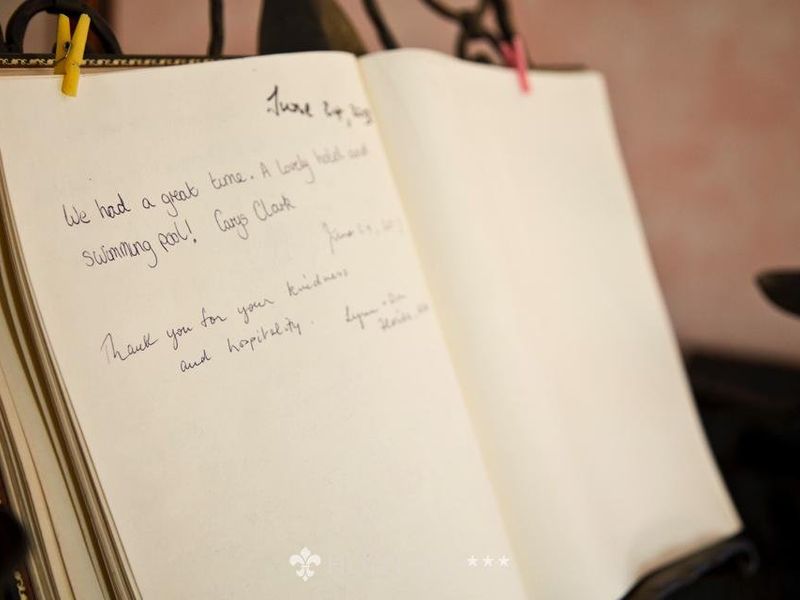 June 24,
We had a great time. A lovely hotel and
swimming pool! Carys Clark
June 29,
Thank you for your kindness
and hospitality. Lynn + Don
Florida,